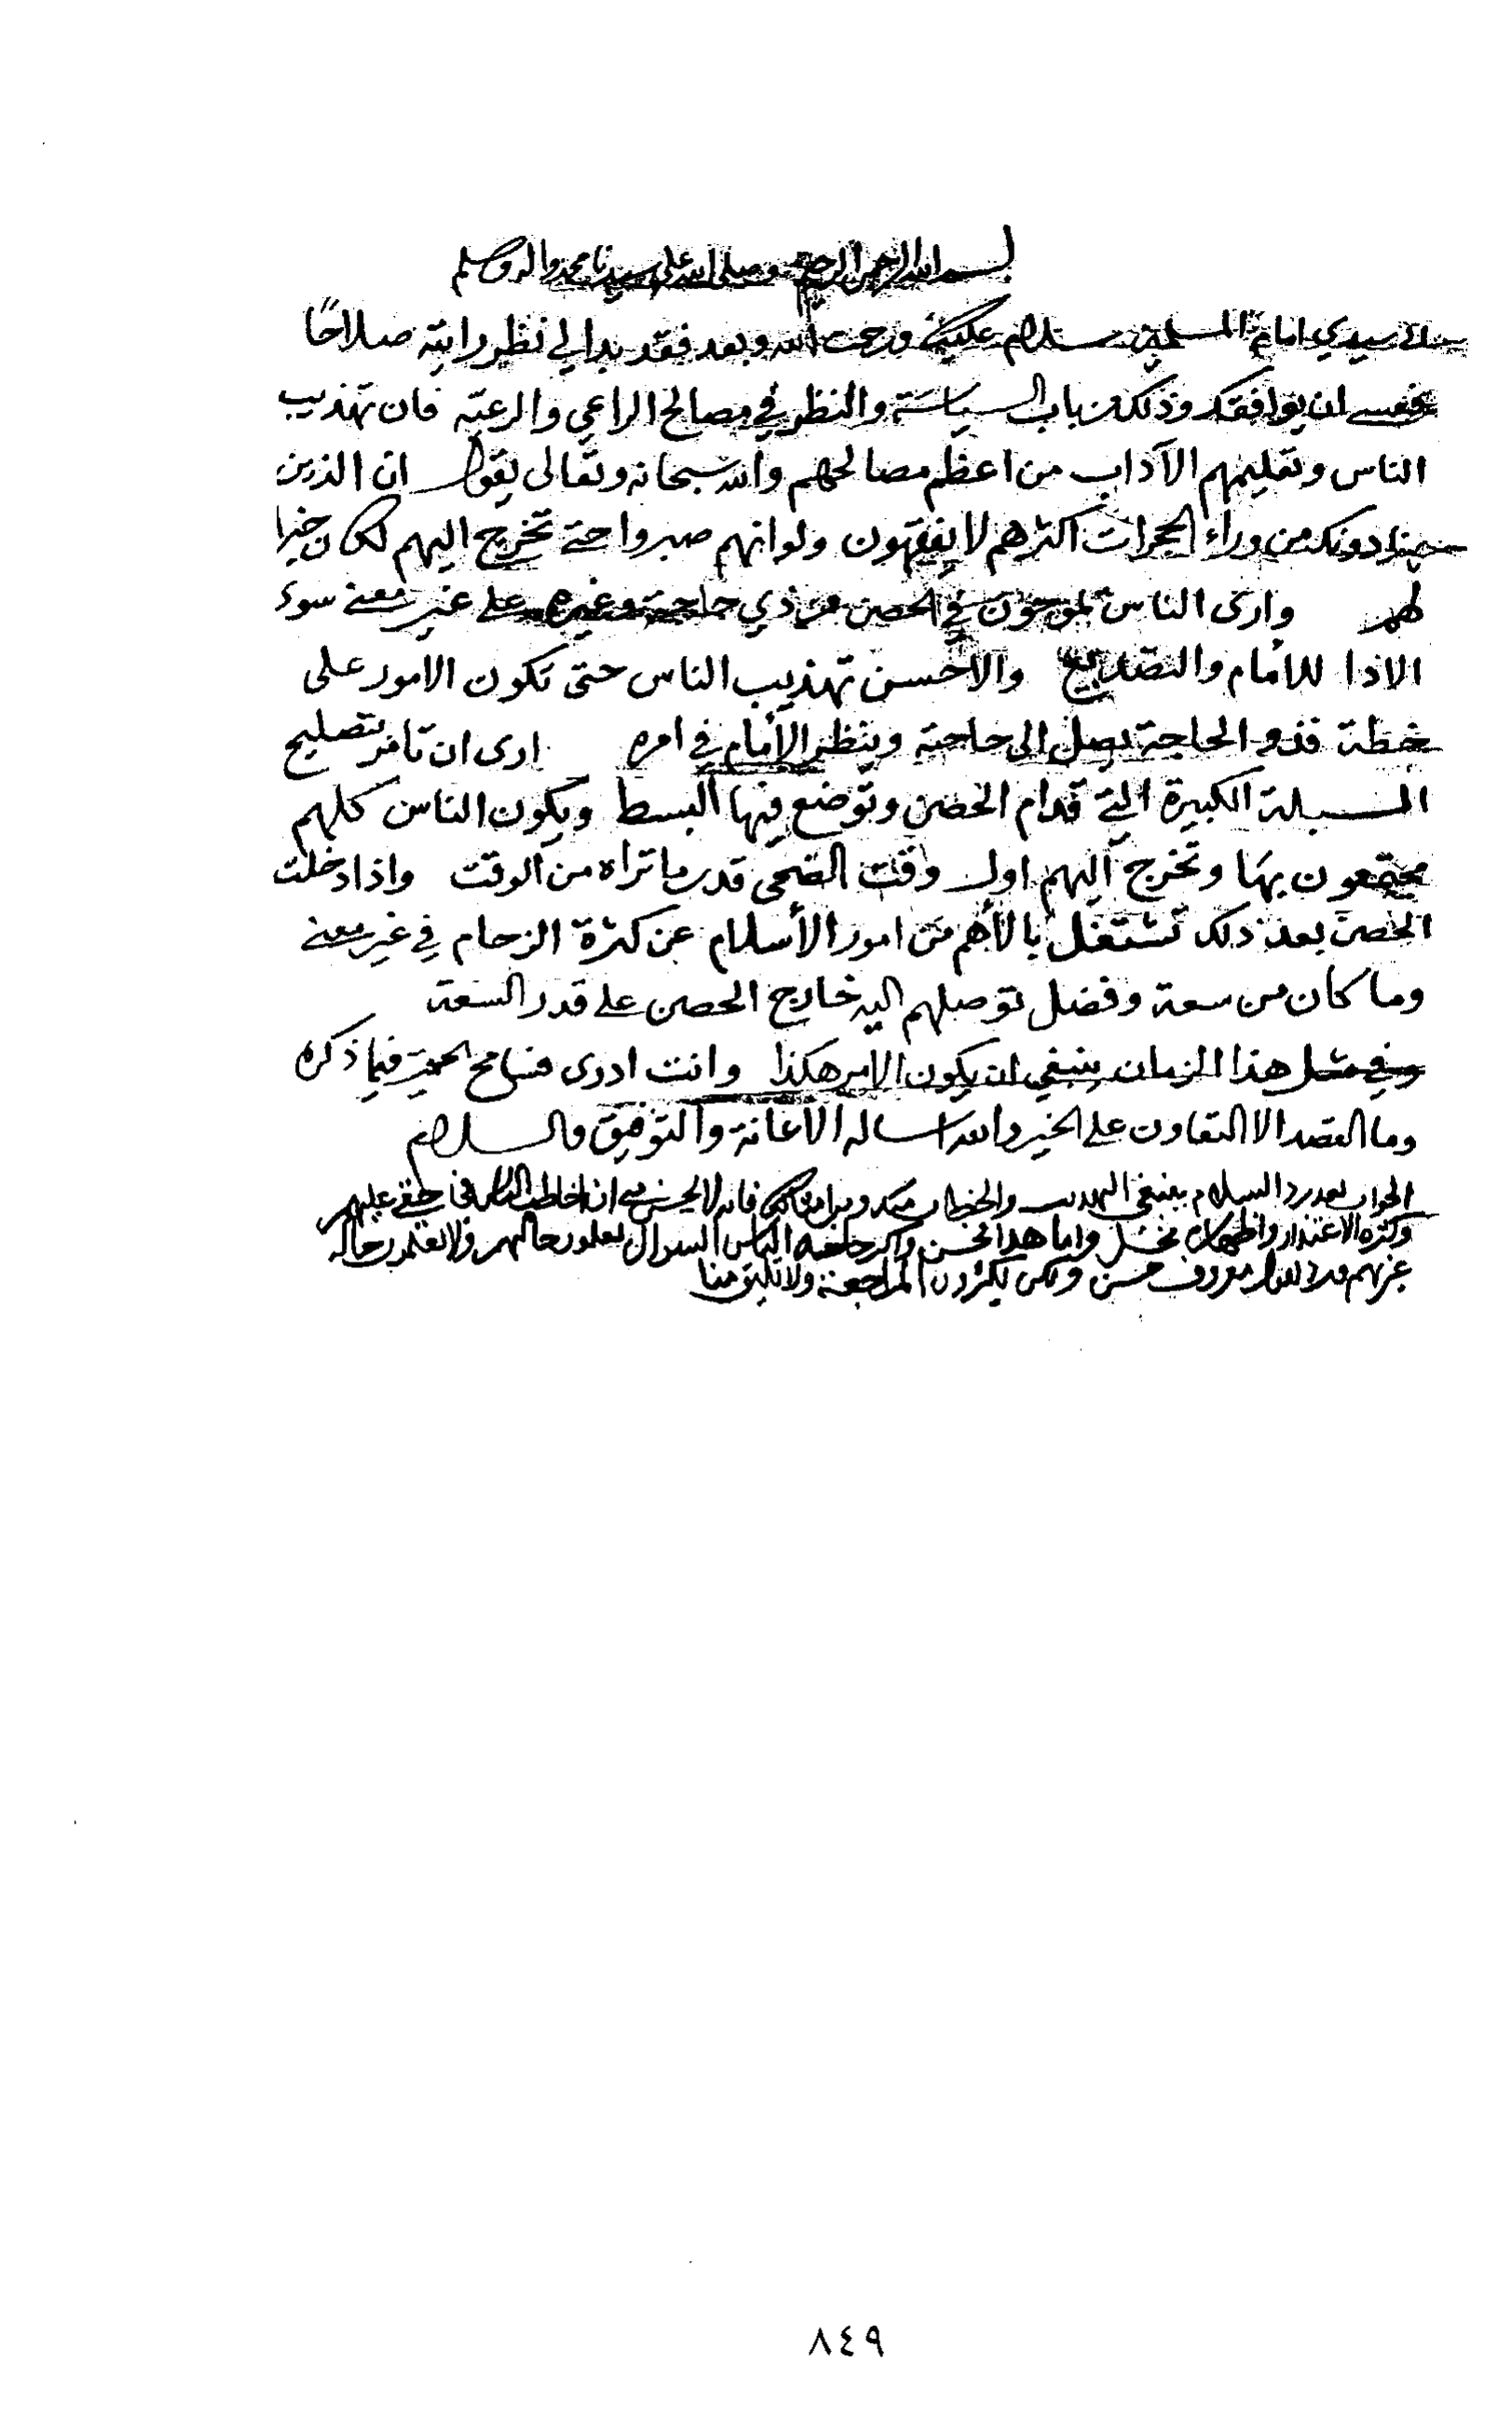 بسم الله الرحمن الرحيم وصلى الله على سيدنا محمد واله وسلم
سيدي امام المسلمين سلام عليك ورحمت الله وبعد فقد بدا لي نظر رايته صلاحًا
عسى ان يوافقك وذلك من باب السياسة والنظر في مصالح الراعي والرعية فان تهذيب
الناس وتعليمهم الآداب من اعظم مصالحهم والله سبحانه وتعالى يقول ان الذين
ينادونك من وراء الحجرات اكثرهم لا يفقهون ولو انهم صبروا حتى تخرج اليهم لكان خيرا
لهم وارى الناس يموجون في الحصن من ذي حاجة وغيره على غير معنى سوء
الاذا للأمام والتصديع والأحسن تهذيب الناس حتى تكون الامور على
خطة فذو الحاجة يصل الى حاجته وينظر الأمام في امره ارى ان تامر بتصليح
السبلة الكبيرة التي قدام الحصن وتوضع فيها البسط ويكون الناس كلهم
مجتمعون بها وتخرج اليهم اول وقت الضحى قدر ما تراه من الوقت واذا دخلت
الحصن بعد ذلك تشتغل بالأهم من امور الأسلام عن كثرة الزحام في غير معنى
وما كان من سعة وفضل توصلهم اليه خارج الحصن على قدر السعة
وفي مثل هذا الزمان ينبغي ان يكون الامر هكذا وانت ادرى فسامح محبك فيما ذكره
وما القصد الا التعاون على الخير والله اساله الاعانة والتوفيق والسلام
الجواب بعد رد السلام ينبغي التهذيب والخطاب منكم فانه لا يحسن مني ان اخاطب الناس في حقي عليهم
وكثرة الاعتذار واظهاره واما هذا الحسن الناس السوال
حسن ولكن يكثرون المراجعة ولا تليق منا
٨٤٩